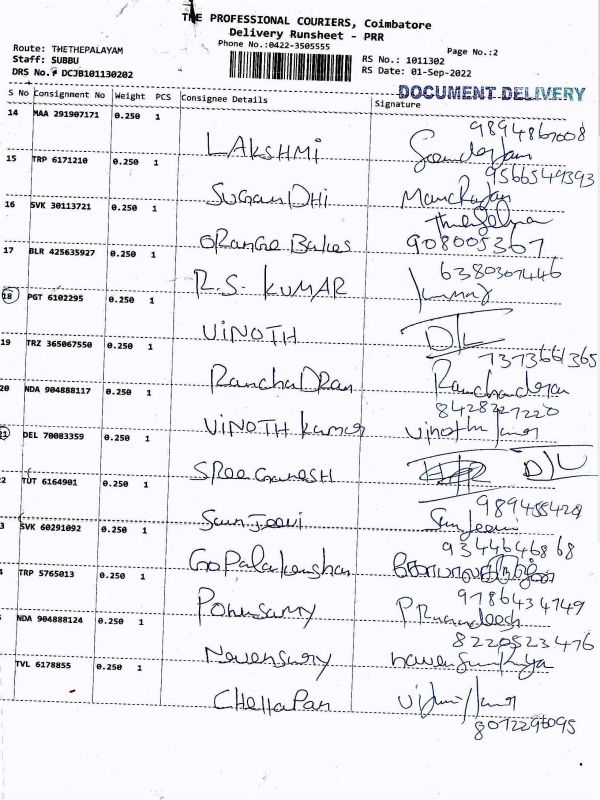 THE PROFESSIONAL COURIERS, Coimbatore
Delivery Runsheet - PRR
Phone No.:0422-3505555
Page No.:2
Route: THETHEPALAYAM
Staff: SUBBU
DRS No.# DCJB101130202
RS No.: 1011302
RS Date: 01-Sep-2022
DOCUMENT DELIVERY
S No Consignment No Weight PCS Consignee Details Signature
14 MAA 291907171 0.250 1
LAKSHMI 9894867008
15 TRP 6171210 0.250 1
SUGANDHI 9566549393
16 SVK 30113721 0.250 1
ORANGE Bakes 908005367
17 BLR 425635927 0.250 1
R.S. KUMAR 6380307446
18 PGT 6102295 0.250 1
VINOTH D/L
19 TRZ 365067550 0.250 1
RanchaDRan 7373661365
20 NDA 904888117 0.250 1
VINOTH kumar 8428227220
21 DEL 70083359 0.250 1
SREE GANESH D/L
2 TUT 6164901 0.250 1
SanJeevi 989455428
3 SVK 60291092 0.250 1
9344646868
TRP 5765013 0.250 1
9786434749
NDA 904888124 0.250 1
8220523476
TVL 6178855 0.250 1
Chellapan
8072296095